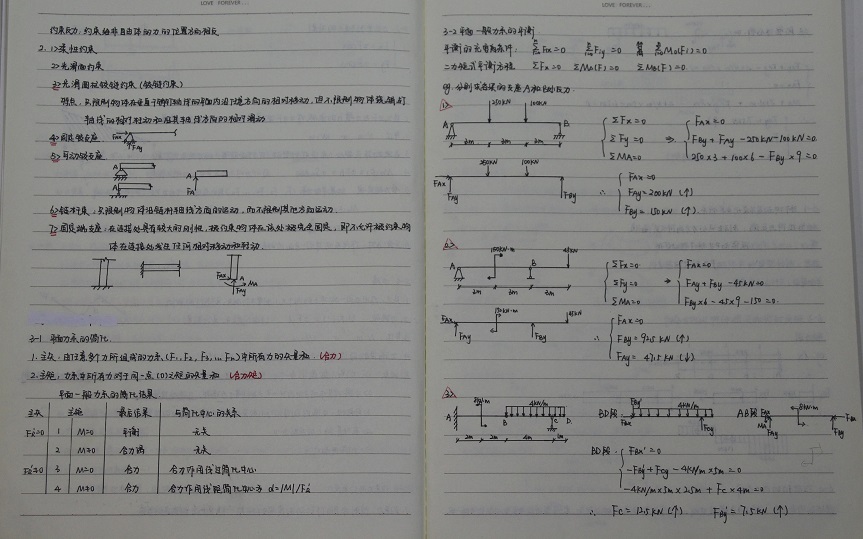 LOVE FOREVER...
约束反力: 约束给非自由体的力的位置方向相反
2. 1>柔担约束
2>光滑面约束
3>光滑圆柱铰链约束 (铰链约束)
特点: 只限制物体在垂直于销钉轴线的平面内沿任意方向的相对移动, 但不限制物体绕销钉
轴线的相对转动和沿其轴线方向的相对滑动
4>固定铰支座
FAx
FAy
5>可动铰支座
A
A
A
FA
6>链杆约束: 只限制物体沿链杆轴线方向的运动, 而不限制其他方向运动.
7>固定端支座: 在连接处具有较大的刚性, 被约束的物体在该处被完全固定, 即不允许被约束的
物体在连接处发生任何相对移动和转动.
FAx A MA
FAy
3-1 平面力系的简化.
1. 主矢: 由任意多个力所组成的力系(F₁, F₂, F₃, ... Fn)中所有力的矢量和 (合力)
2. 主矩: 力系中所有力对于同一点(O)之矩的矢量和 (合力矩)
平面一般力系的简化结果
主矢 主矩 最后结果 与简化中心的关系
1 M=0 平衡 无关
2 M≠0 合力偶 无关
3 M=0 合力 合力作用线过简化中心
4 M≠0 合力 合力作用线距简化中心为
LOVE FOREVER...
3-2 平面一般力系的平衡
平衡的充要条件: ΣFix=0 ΣFiy=0 ΣMo(Fi)=0
二力矩式平衡方程 ΣFx=0 ΣMA(F)=0 ΣMB(F)=0
例. 分别求各梁的支座A和B的反力.
1>
250kN 100kN
A B
3m 3m 3m
ΣFx=0
ΣFy=0
ΣMA=0
⇒
FAx=0
FBy+FAy-250kN-100kN=0
250×3+100×6-FBy×9=0
250kN 100kN
FAx FAy FBy
∴
FAx=0
FAy=200kN (↑)
FBy=150kN (↑)
2>
150kN·m 45kN
A B
3m 3m 3m
ΣFx=0
ΣFy=0
ΣMA=0
⇒
FAx=0
FAy+FBy-45kN=0
FBy×6-45×9-150=0.
150kN·m 45kN
FAx FAy FBy
∴
FAx=0
FBy=92.5kN (↑)
FAy=47.5kN (↓)
3>
4kN/m
A B C D
2m 2m 4m
BD段
4kN/m
FBy' FBx' FCy
AB段
FAx MA FAy
8kN·m
FBx FBy
BD段:
FBx'=0
-FBy'+FCy-4kN/m×5m=0
-4kN/m×5m×2.5m+FC×4m=0
∴ FC=12.5kN (↑) FBy'=7.5kN (↑)